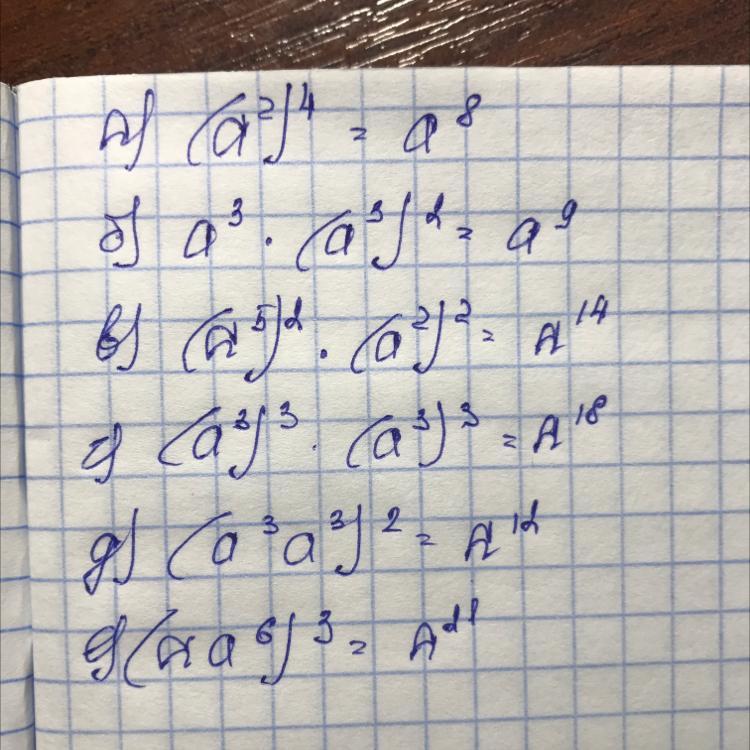 а) (a²)⁴ = a⁸
б) a³ · (a³)² = a⁹
в) (a⁵)² · (a²)² = A¹⁴
г) (a³)³ · (a³)³ = A¹⁸
д) (a³a³)² = A¹²
е) (a a⁶)³ = A²¹